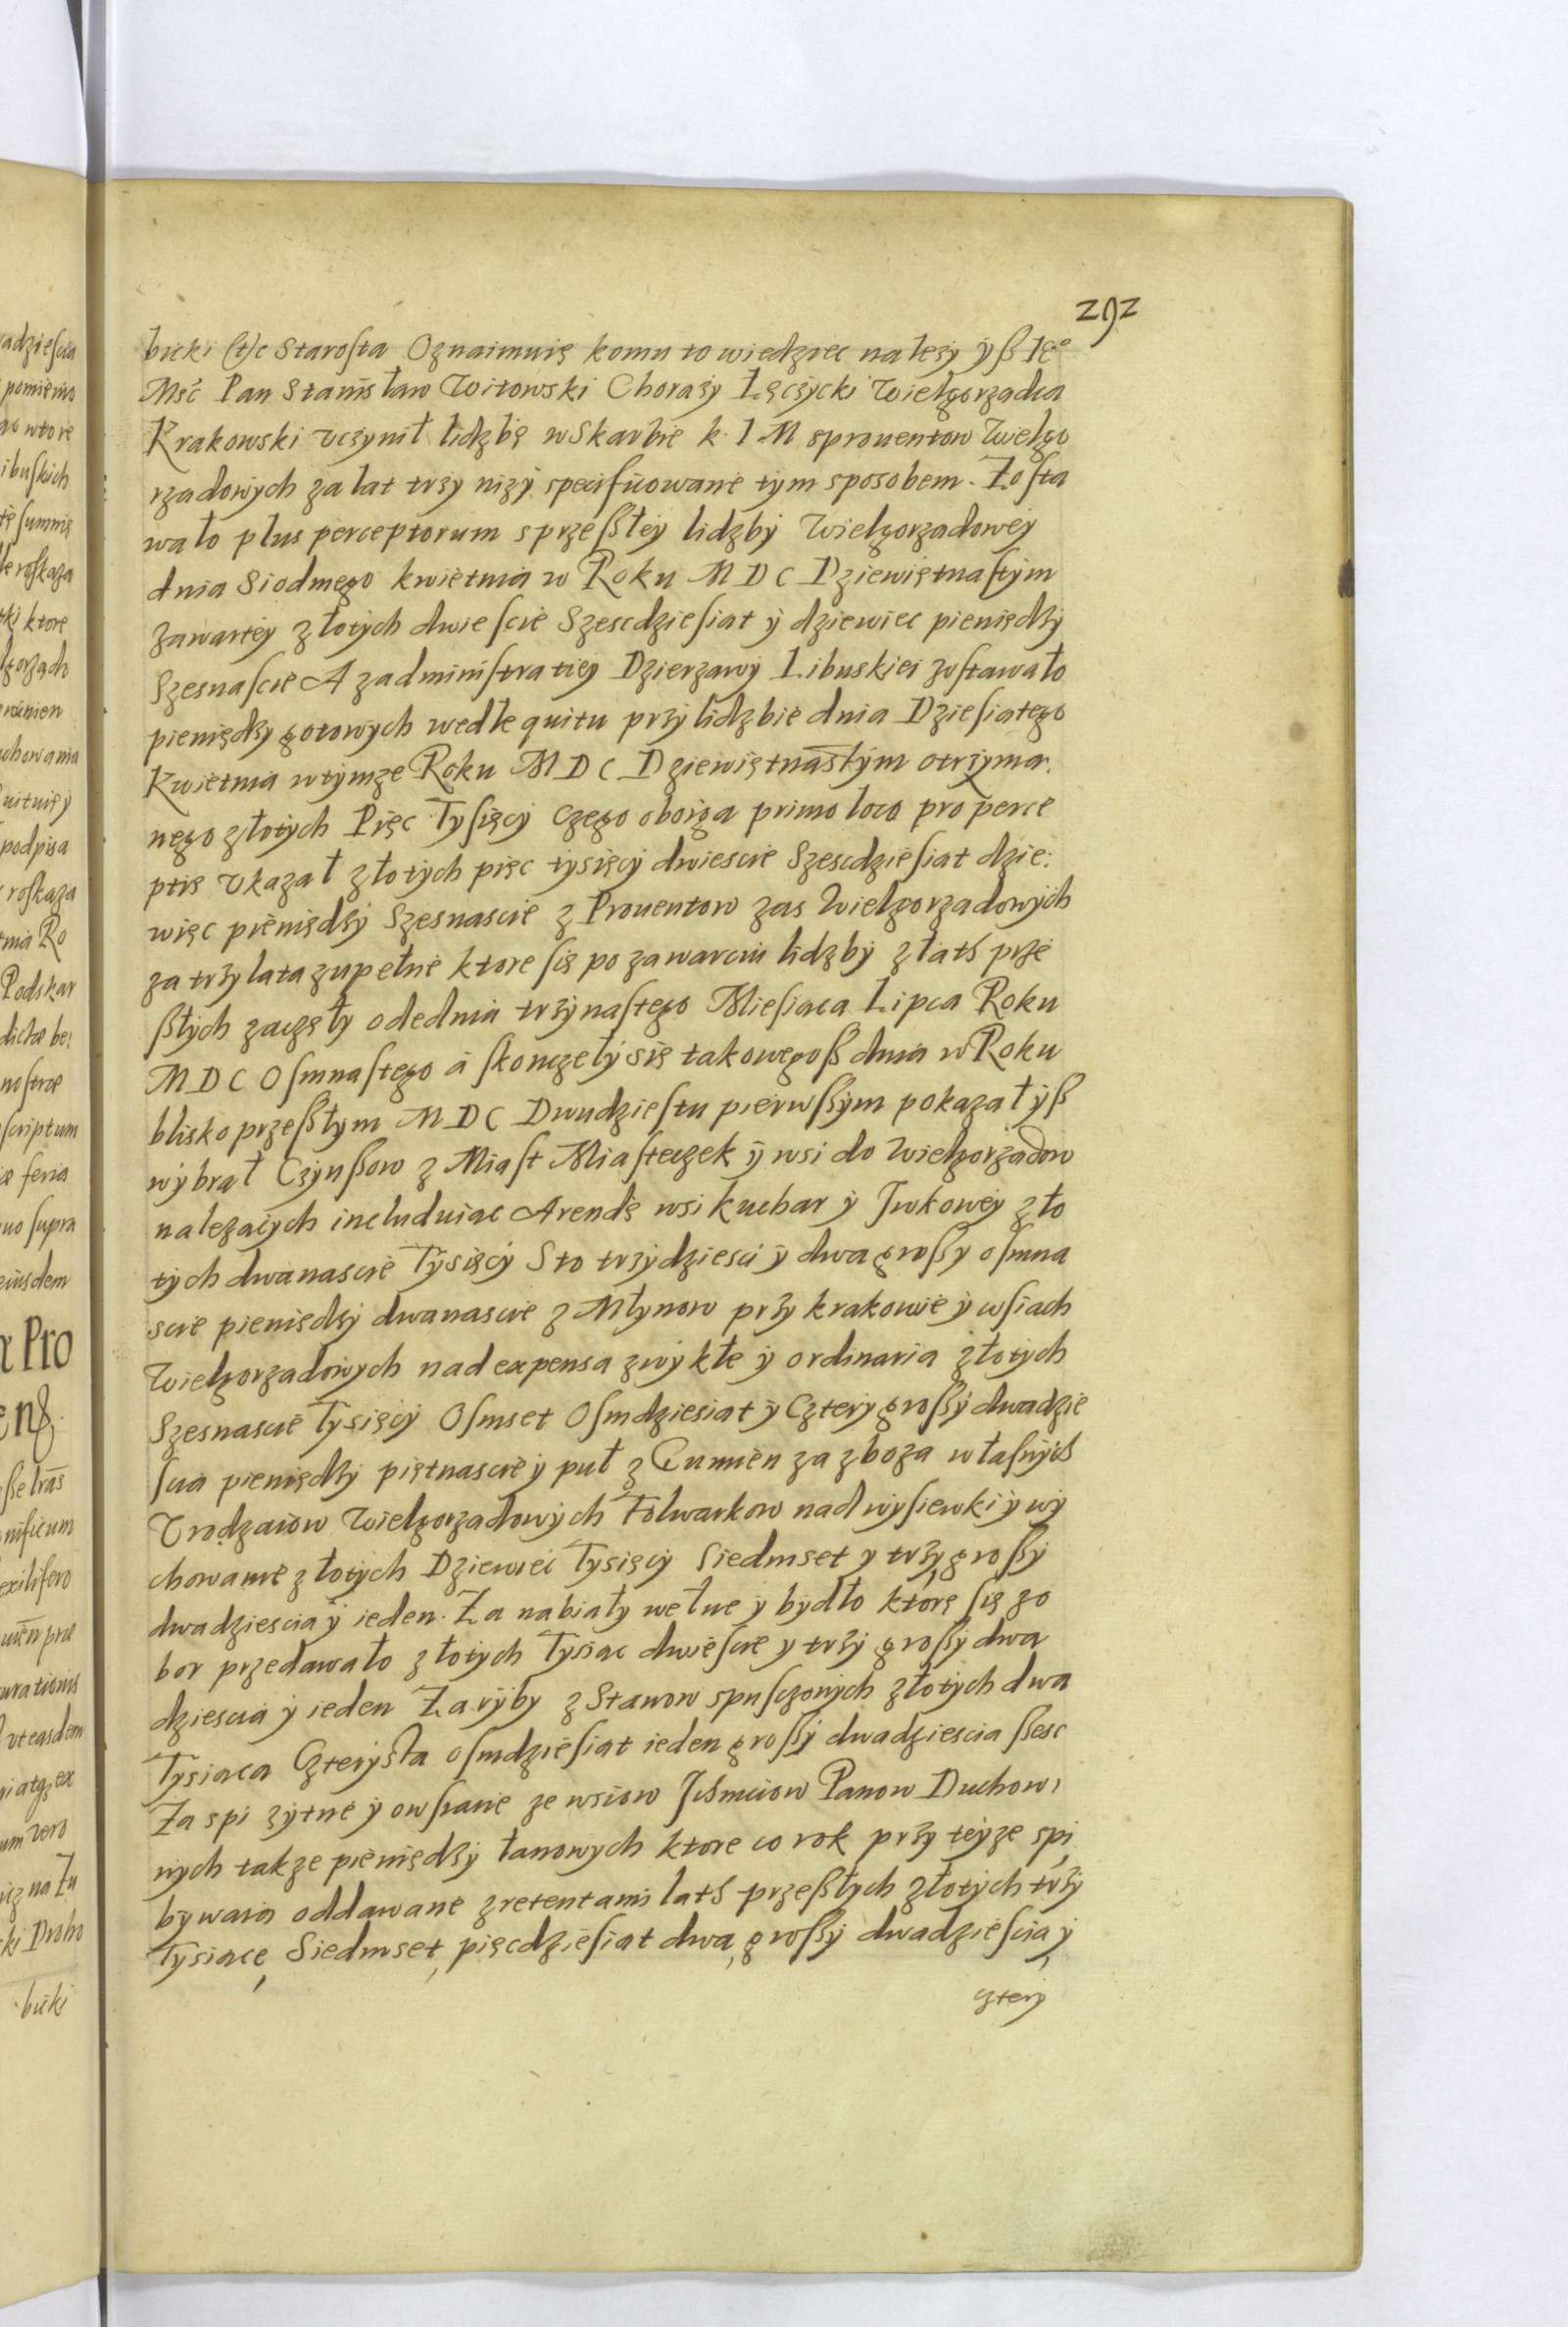 292
bicki (t)c Starosta Oznaimuię komu to wiedziec nalezy yß Ieº
Msć Pan Stanisław Witowski Chorazy Łęczycki Wielgorzadca
Krakowski vczynił lidzbę w Skarbie k. I M sprouentow Wielgo
rzadowych za lat trzy nizy specificowane tym sposobem. Zosta
wało plus perceptorum s przeßłey lidzby Wielgorzadowey
dnia Siodmego kwietnia w Roku M D C Dziewiętnastym
zawartey złotych dwiescie Szescdziesiat y dziewiec pieniędzy
Szesnascie A z administratiey Dzierzawy Libuskiei zostawało
pieniędzy gotowych wedle quitu przy lidzbie dnia Dziesiatego
Kwietnia w tymze Roku M D C Dziewiętnastym otrzyma.
nego złotych Pięc Tysięcy Czego oboiga primo loco pro perce
ptis Vkazał złotych pięc tysięcy dwiescie Szescdziesiat dzie:
więc pieniędzy Szesnascie z Prouentow zas Wielgorzadowych
za trzy lata zupełne ktore się po zawarciu lidzby z łath prze
ßłych zaczęły odednia trzynastego Miesiaca Lipca Roku
M D C Osmnastego a skonczęły się takowegoß dnia w Roku
blisko przeßłym M D C Dwudziestu pierwßym pokazał yß
wybrał Czynßow z Miast Miasteczek y wsi do Wielgorzadow
nalezacych includuiac Arendę wsi kuchar y Iwkowey zło
tych dwanascie Tysięcy Sto trzydziesci y dwa großy osmna
scie pieniędzy dwanascie z Młynow przy krakowie y wsiach
Wielgorzadowych nad expensa zwykłe y ordinaria złotych
Szesnascie Tysięcy Osmset Osmdziesiat y Cztery großy dwadzie
scia pieniędzy piętnascie y puł z Gumien za zboza własnych
Vrodzaiow Wielgorzadowych Folwarkow nad wysiewki y wy
chowanie złotych Dziewiec Tysięcy Siedmset y trzy großy
dwadziescia y ieden. Za nabiały wełne y bydło ktorę się zo
bor przedawało złotych Tysiac dwiescie y trzy großy dwa
dziescia y ieden Za ryby z Stawow spusczonych złotych dwa
Tysiaca Czterysta osmdziesiat ieden großy dwadziescia ßesc
Za spi zytne y owsiane ze wsiow Ichmciow Panow Duchow
nych takze pieniędzy łanowych ktore co rok przy teyze spi
bywaia oddawane z retentami lath przeßłych złotych trzy
Tysiace, Siedmset, pięcdziesiat dwa, großy dwadziescia, y
cztery
adziescia
pomięnio
wtore
ibuskich
summę
roskaza
ki ktore
chowania
podpisa
roskaza
Podskar
dictæ be:
nostræ
scriptum
feria
supra
eiusdem
Pro
nificum
exilifero
vt easdem
vero
Droho
bicki